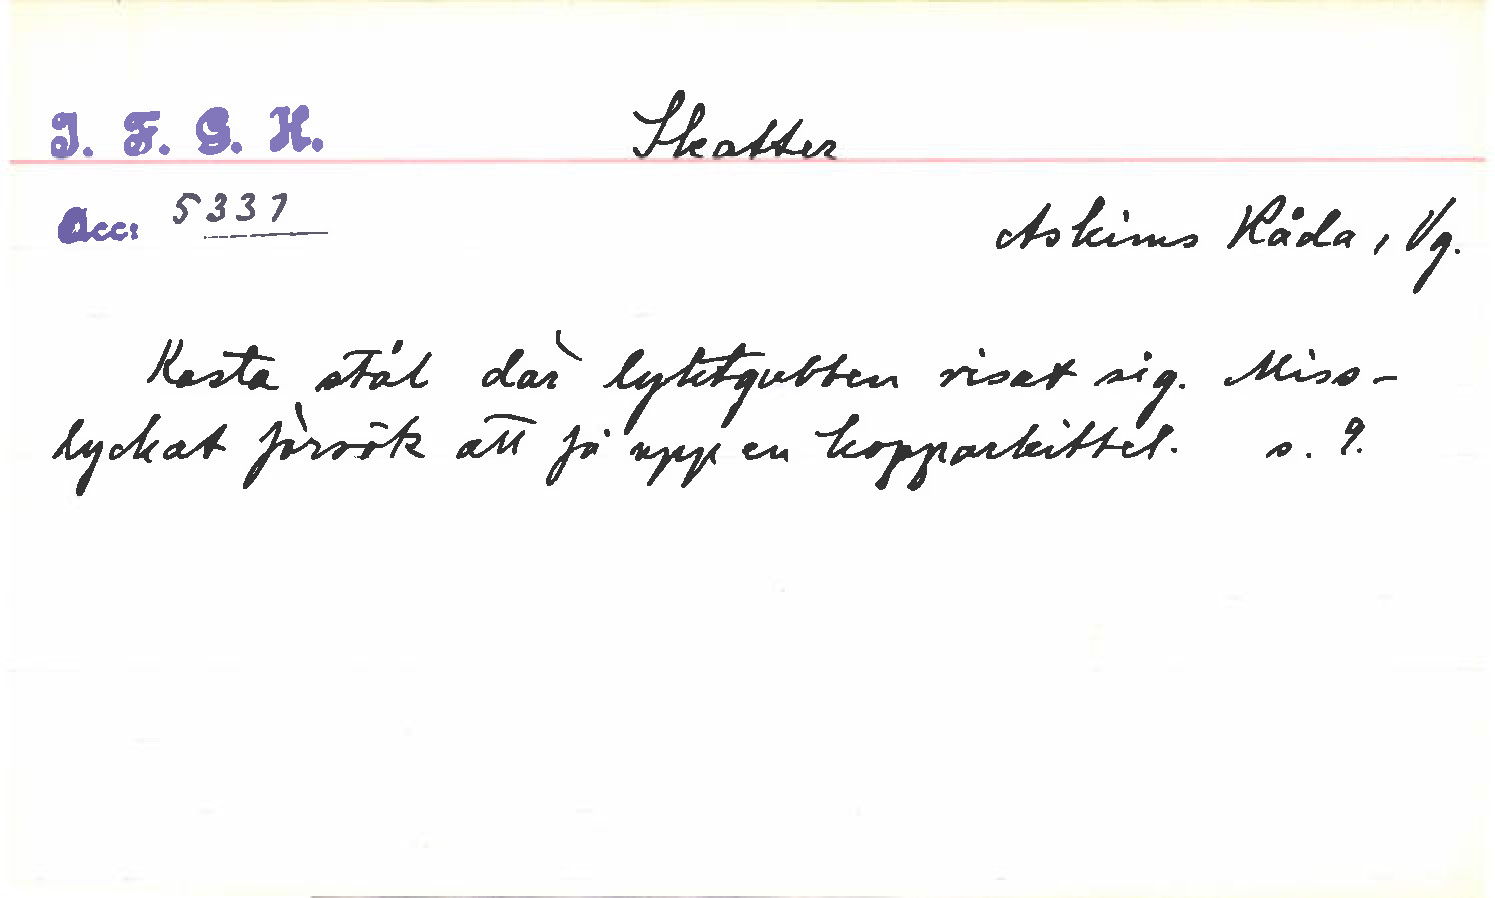 I. F. G. H.
Skatter
Acc: 5337
Askims Råda, Vg.
Kasta stål där lyktgubben visat sig. Miss-
lyckat försök att få upp en kopparkittel. s. 9.